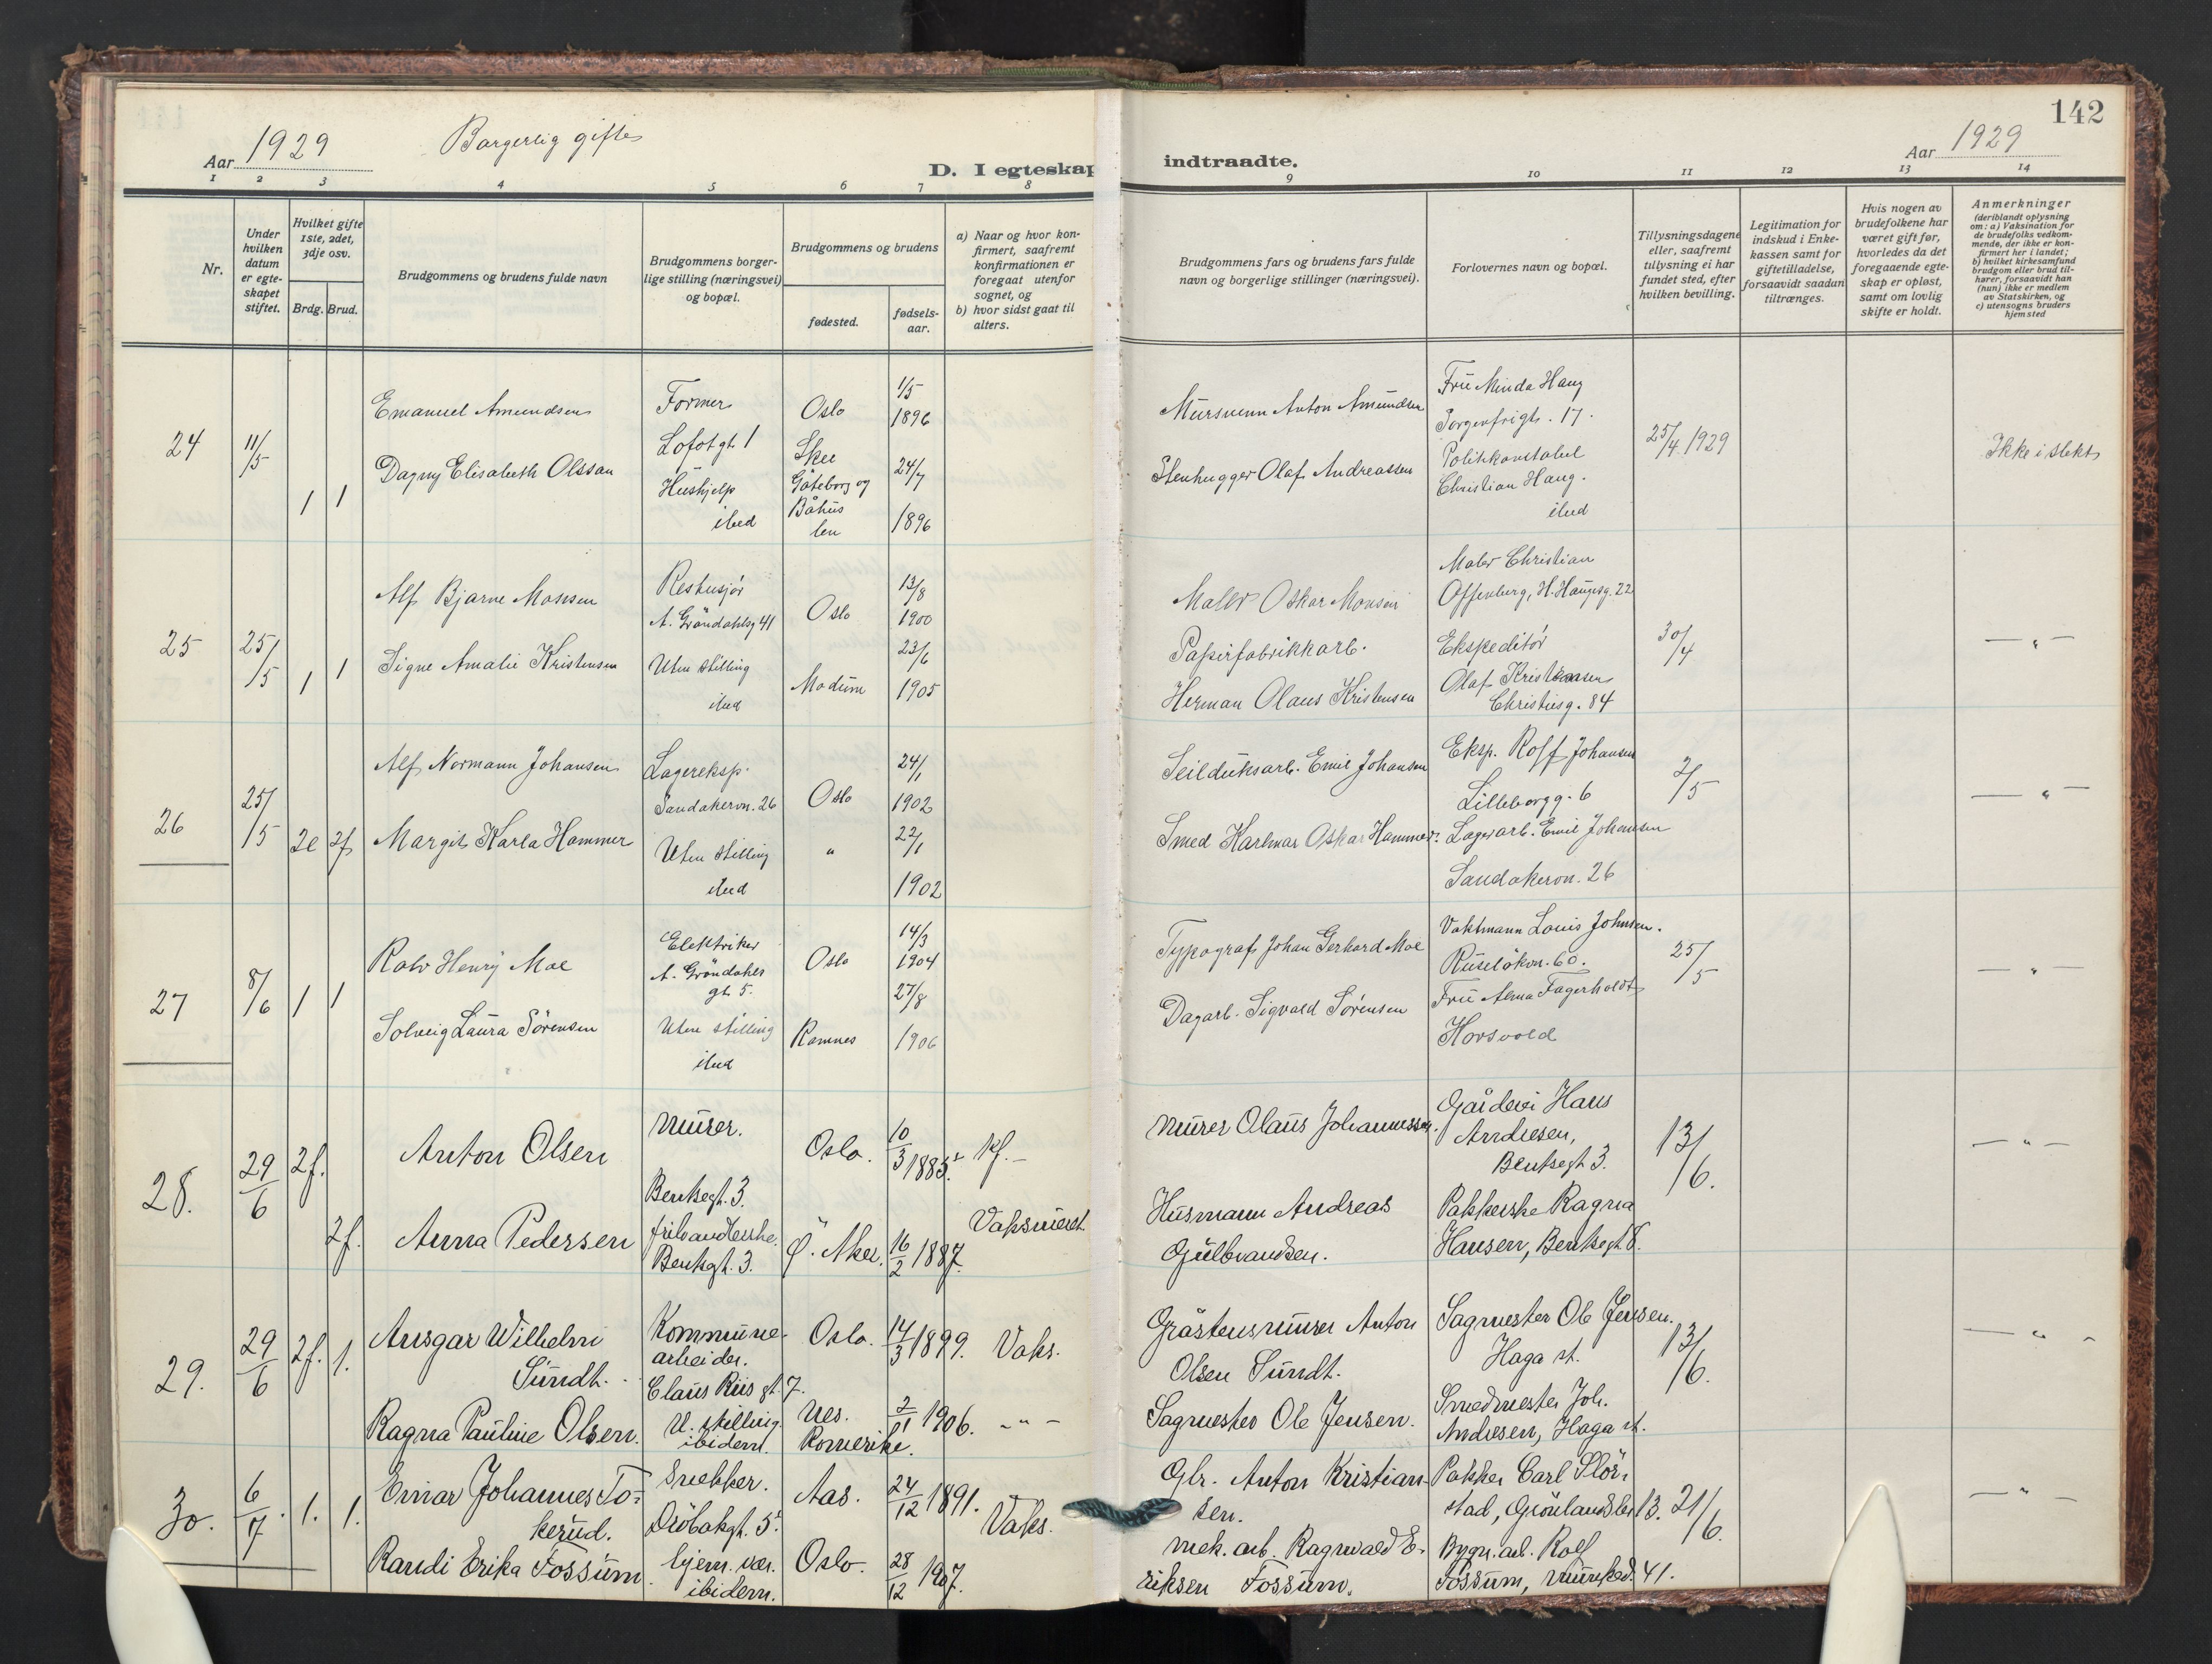 142
Aar 1929
Borgerlig gifte
D. I egteskap
indtraadte.
Aar 1929
1 2 3 4 5 6 7 8 9 10 11 12 13 14
Nr.
Under hvilken datum er egte-skapet stiftet.
Hvilket gifte 1ste, 2det, 3dje osv.
Brdg. Brud.
Brudgommens og brudens fulde navn
Brudgommens borger-
lige stilling (næringsvei)
og bopæl.
Brudgommens og brudens
fødested.
fødsels-
aar.
a) Naar og hvor kon-
firmert, saafremt
konfirmationen er
foregaat utenfor
sognet, og
b) hvor sidst gaat til
alters.
Brudgommens fars og brudens fars fulde
navn og borgerlige stillinger (næringsvei).
Forlovernes navn og bopæl.
Tillysningsdagene
eller, saafremt
tillysning ei har
fundet sted, efter
hvilken bevilling.
Legitimation for
indskud i Enke-
kassen samt for
giftetilladelse,
forsaavidt saadan
tiltrænges.
Hvis nogen av
brudefolkene har
været gift før,
hvorledes da det
foregaaende egte-
skap er opløst,
samt om lovlig
skifte er holdt.
Anmerkninger
(deriblandt oplysning
om: a) Vaksination for
de brudefolks vedkom-
mende, der ikke er kon-
firmert her i landet;
b) hvilket kirkesamfund
brudgom eller brud til-
hører, forsaavidt han
(hun) ikke er medlem
av Statskirken, og
c) utensogns bruders
hjemsted
24
11/5
1 1
Emanuel Amundsen
Dagny Elisabeth Olssan
Former
Lofotgt. 1
Hushjelp
ibid
Oslo
Skee
Göteborg og
Båhus
len
1/5
1896
24/7
1896
Mursvenn Anton Amundsen
Stenhugger Olaf Andreassen
Fru Minda Haug
Sorgenfrigt. 17.
Politikonstabel
Christian Haug.
ibid
25/4 1929
Ikke i slekt
25
25/5
1 1
Alf Bjarne Monsen
Signe Amalie Kristensen
A. Gröndahlsg 41
Uten stilling
ibid
Oslo
Modum
13/8
1900
23/6
1905
Maler Oskar Monsen
Papirfabrikkarb.
Herman Olaus Kristensen
Maler Christian
Offenberg, H. Haugesg. 22
Ekspeditör
Olaf Kristensen
Christiesg. 84
30/4
— " —
26
25/5
2e 2f
Alf Normann Johansen
Margit Karla Hammer
Lagereksp.
Sandakervn. 26
Uten stilling
ibid
Oslo
"
24/1
1902
22/1
1902
Seilduksarb. Emil Johansen
Smed Karlmar Oskar Hammer.
Eksp. Rolf Johansen
Lilleborgg. 6
Lagerarb. Emil Johansen
Sandakervn. 26
2/5
— " —
27
8/6
1 1
Ralv Henry Moe
Solveig Laura Sörensen
Elektriker
A. Gröndahls
gt. 5.
Uten stilling
ibid
Oslo
Ramnes
14/3
1904
27/8
1906
Typograf Johan Gerhard Moe
Dagarb. Sigvald Sörensen
Vaktmann Louis Johnsen.
Ruselökvn. 60.
Fru Alma Fagerholdt
Horsvold
25/5
— " —
28.
29/6
2f.
2f.
Anton Olsen
Anna Pedersen
Murer.
Bentsegt. 3.
frilandselske.
Bentsgt. 3.
Oslo.
Ø. Aker.
10/3 1885.
16/2 1887.
Kf. —
Vaksineret.
Murer Olaus Johannessen.
Husmann Andreas
Gulbrandsen.
Gårdeier Hans
Andresen,
Bentsegt 3.
Pakkerske Ragna
Hansen, Bentsegt 8.
13/6.
— " —
29.
29/6
2f. 1.
Ansgar Wilhelm
Sundt.
Ragna Pauline Olsen.
Kommune-
arbeider.
Claus Riis gt. 7.
U. stilling
ibidem.
Oslo.
Nes.
Romerike.
14/3 1899.
2/11 1906.
Vaks.
- " -
Gråstensmurer Anton
Olsen Sundt.
Sagmester Ole Jensen.
Sagmester Ole Jensen.
Haga st.
Smedmester Joh.
Andresen, Haga st.
13/6.
— " -
30.
6/7.
1. 1.
Einar Johannes To-
kerud.
Randi Erika Fossum
Snekker.
Dröbakgt. 5.
hjem. vær.
ibidem.
Aas.
Oslo.
24/12 1891.
28/12 1907.
Vaks.
Gbr. Anton Kristian-
sen.
mek. arb. Ragnvald E-
riksen Fossum.
Pakker Carl Slör-
stad, Grönlandsler 13.
Bygn. arb. Rolf
Fossum, Munked. 41.
21/6.
— " —